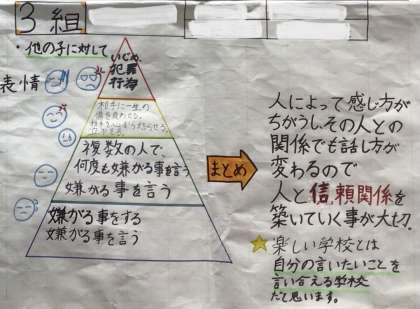 3組
・他の子に対して
表情
いじめ
犯罪
行為
相手に一生の
複数の人で
何度も嫌がる事を言う
嫌がる事を言う
嫌がる事をする
嫌がる事を言う
まとめ
人によって感じ方が
ちがうし、その人との
関係でも話し方が
変わるので
人と信頼関係を
築いていく事が大切。
楽しい学校とは
自分の言いたいことを
言い合える学校
だと思います。